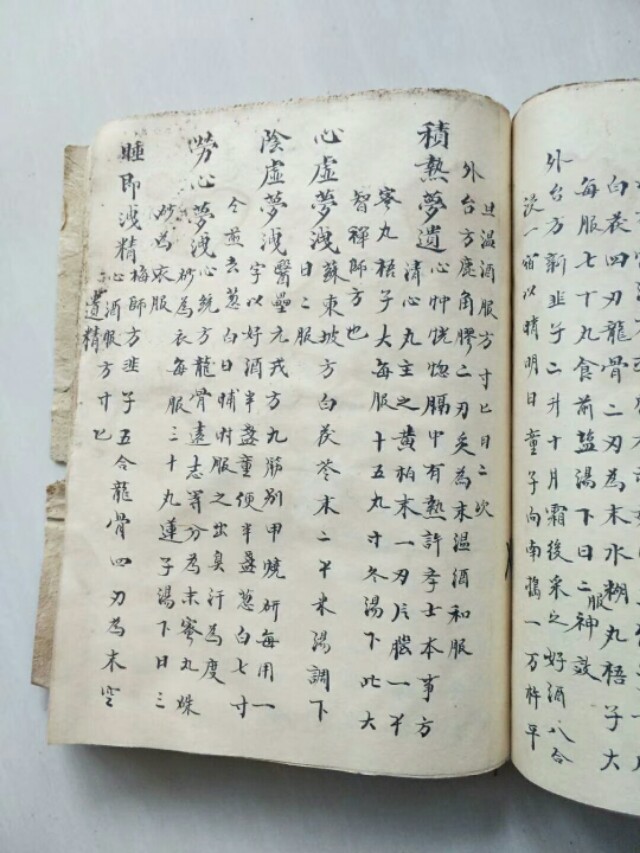 白茯四刃龍骨二刃為末水糊丸梧子大
每服七十丸食前盐湯下日二服神效
外台方新韭子二升十月霜後采之好酒八合
浸一宿以晴明日童子向南搗一万杵平
旦温酒服方寸匕日二次
外台方鹿角膠二刃炙為末温酒和服
積熱夢遺 心忡恍惚膈中有熱許孝士本事方
清心丸主之黄柏末一刃片腦一十
蜜丸梧子大每服十五丸寸冬湯下此大
智禅師方也
心虛夢洩 蘇東坡方白茯苓末二十米湯調下
日二服
陰虛夢洩 醫壘元戎方九筋別甲燒研每用一
字以好酒半盏童便半盏葱白七寸
仝煎去葱白日晡时服之出臭汗為度
勞心夢洩 心統方龍骨遠志等分為末蜜丸珠
砂為衣每服三十丸蓮子湯下日三
服
睡即洩精 梅師方韭子五合龍骨四刃為末空
心酒服方寸匕
遺精